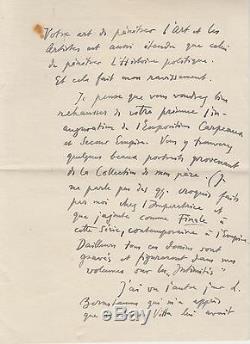 Votre art de pénétrer l'Art et les
Artistes est aussi étendu que celui
de pénétrer l'Histoire politique.
Et cela fait mon ravissement.
Je pense que vous voudrez bien
rehausser de votre présence l'in-
auguration de l'Exposition Carpeaux
et Second Empire. Vous y trouverez
quelques beaux portraits provenant
de la Collection de mon père. (Je
ne parle pas des qq. croquis faits
par moi chez l'Impératrice et
que j'ajoute comme Finale à
cette série, contemporaine à l'Empire.
D'ailleurs tous ces dessins sont
gravés et figureront dans mes
volumes sur les "Intimités"
J'ai vu l'autre jour d.
qui m'a appris
que Vitta lui avait